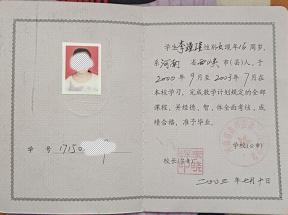 学生李 性别女现年16周岁,
系河南省西峡市(县)人,于
2000年9月至2003年7月在
本校学习,完成教学计划规定的全部
课程,并经德、智、体全面考核,成
绩合格,准予毕业。
学校(公章)
校长(签章)
学 号 17150
2003年七月十日